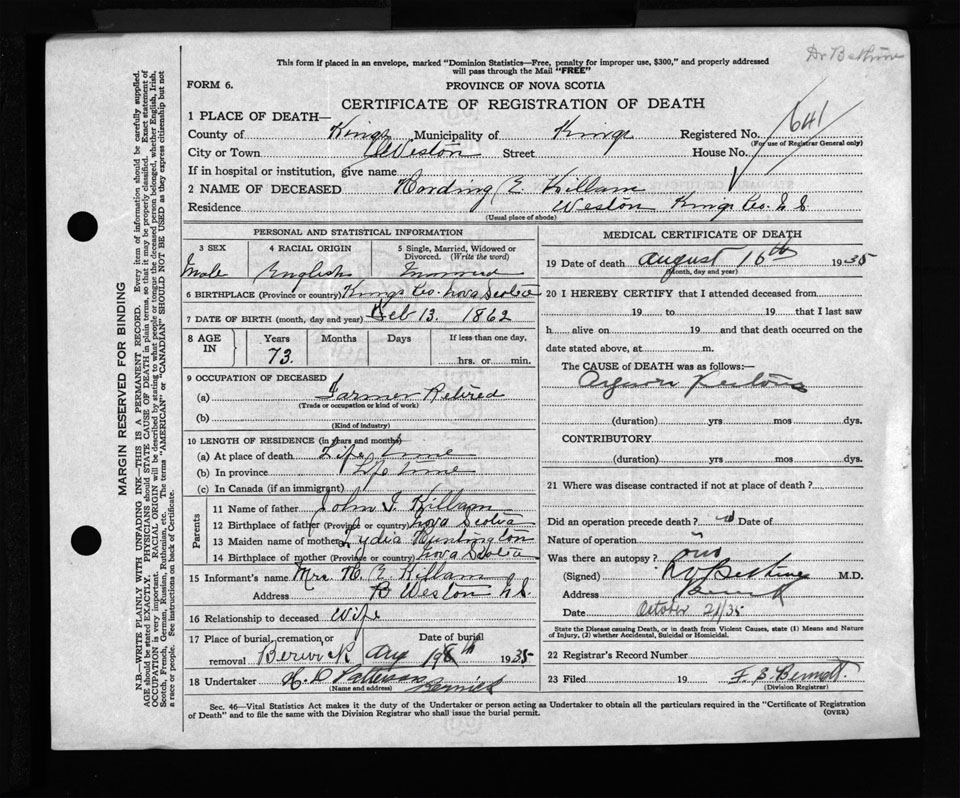 Dr Bethune
This form if placed in an envelope, marked "Dominion Statistics—Free, penalty for improper use, $300," and properly addressed
will pass through the Mail "FREE"
FORM 6.
PROVINCE OF NOVA SCOTIA
CERTIFICATE OF REGISTRATION OF DEATH
1 PLACE OF DEATH—
County of Kings Municipality of Kings Registered No. 641
(For use of Registrar General only)
City or Town Weston Street House No.
If in hospital or institution, give name
2 NAME OF DECEASED Harding E. Killam
Residence Weston Kings Co. N.S.
(Usual place of abode)
PERSONAL AND STATISTICAL INFORMATION
3 SEX 4 RACIAL ORIGIN 5 Single, Married, Widowed or
Divorced. (Write the word)
Male English Married
6 BIRTHPLACE (Province or country) Kings Co. Nova Scotia
7 DATE OF BIRTH (month, day and year) Feb 13. 1862
8 AGE IN Years Months Days If less than one day,
73. hrs. or min.
9 OCCUPATION OF DECEASED
(a) Farmer Retired
(Trade or occupation or kind of work)
(b)
(Kind of industry)
10 LENGTH OF RESIDENCE (in years and months)
(a) At place of death Life time
(b) In province Life time
(c) In Canada (if an immigrant)
Parents
11 Name of father John I. Killam
12 Birthplace of father (Province or country) Nova Scotia
13 Maiden name of mother Lydia Huntington
14 Birthplace of mother (Province or country) Nova Scotia
15 Informant's name Mrs. H. E. Killam
Address Weston N.S.
16 Relationship to deceased Wife
17 Place of burial, cremation or Date of burial
removal Berwick Aug 18th 1935
18 Undertaker H. D. Patterson Berwick
(Name and address)
MEDICAL CERTIFICATE OF DEATH
19 Date of death August 16th 1935
(Month, day and year)
20 I HEREBY CERTIFY that I attended deceased from
19 to 19 that I last saw
h alive on 19 and that death occurred on the
date stated above, at m.
The CAUSE of DEATH was as follows:—
Angina Pectoris
(duration) yrs mos dys.
CONTRIBUTORY
(duration) yrs mos dys.
21 Where was disease contracted if not at place of death?
Did an operation precede death? Date of
Nature of operation
Was there an autopsy?
(Signed) Bethune M.D.
Address Berwick
Date October 21/35
State the Disease causing Death, or in death from Violent Causes, state (1) Means and Nature
of Injury, (2) whether Accidental, Suicidal or Homicidal.
22 Registrar's Record Number
23 Filed 19 F. S. Bennett
(Division Registrar)
Sec. 46—Vital Statistics Act makes it the duty of the Undertaker or person acting as Undertaker to obtain all the particulars required in the "Certificate of Registration
of Death" and to file the same with the Division Registrar who shall issue the burial permit. (OVER)
MARGIN RESERVED FOR BINDING
N.B.—WRITE PLAINLY WITH UNFADING INK—THIS IS A PERMANENT RECORD. Every item of information should be carefully supplied.
AGE should be stated EXACTLY. PHYSICIANS should STATE CAUSE OF DEATH in plain terms, so that it may be properly classified. Exact statement of
OCCUPATION is very important. RACIAL ORIGIN will be described by stating to what people or tongue the deceased person belonged, whether English, Irish,
Scotch, French, German, Russian, Ruthenian, etc. The terms "AMERICAN" or "CANADIAN" SHOULD NOT BE USED as they express citizenship but not
a race or people. See instructions on back of Certificate.